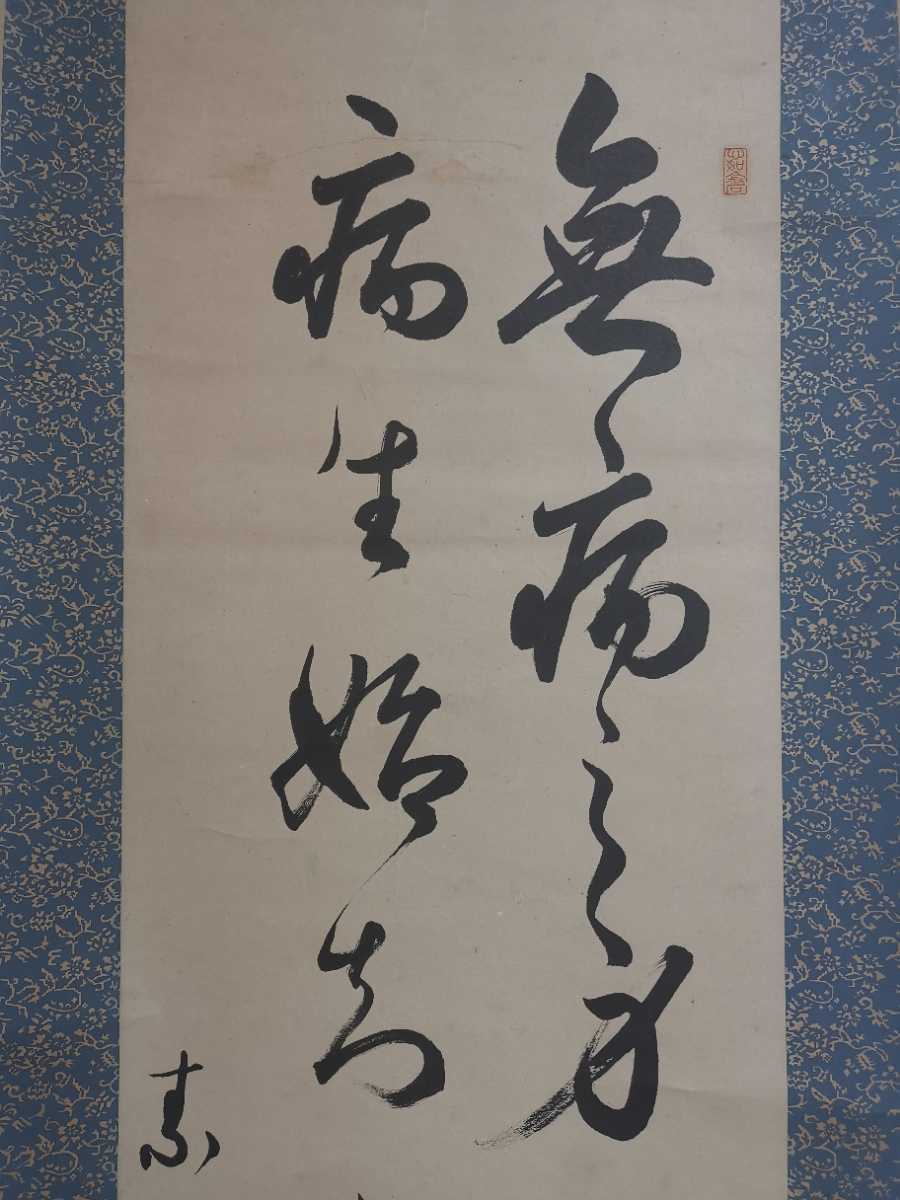 無病之身
病生始知
素